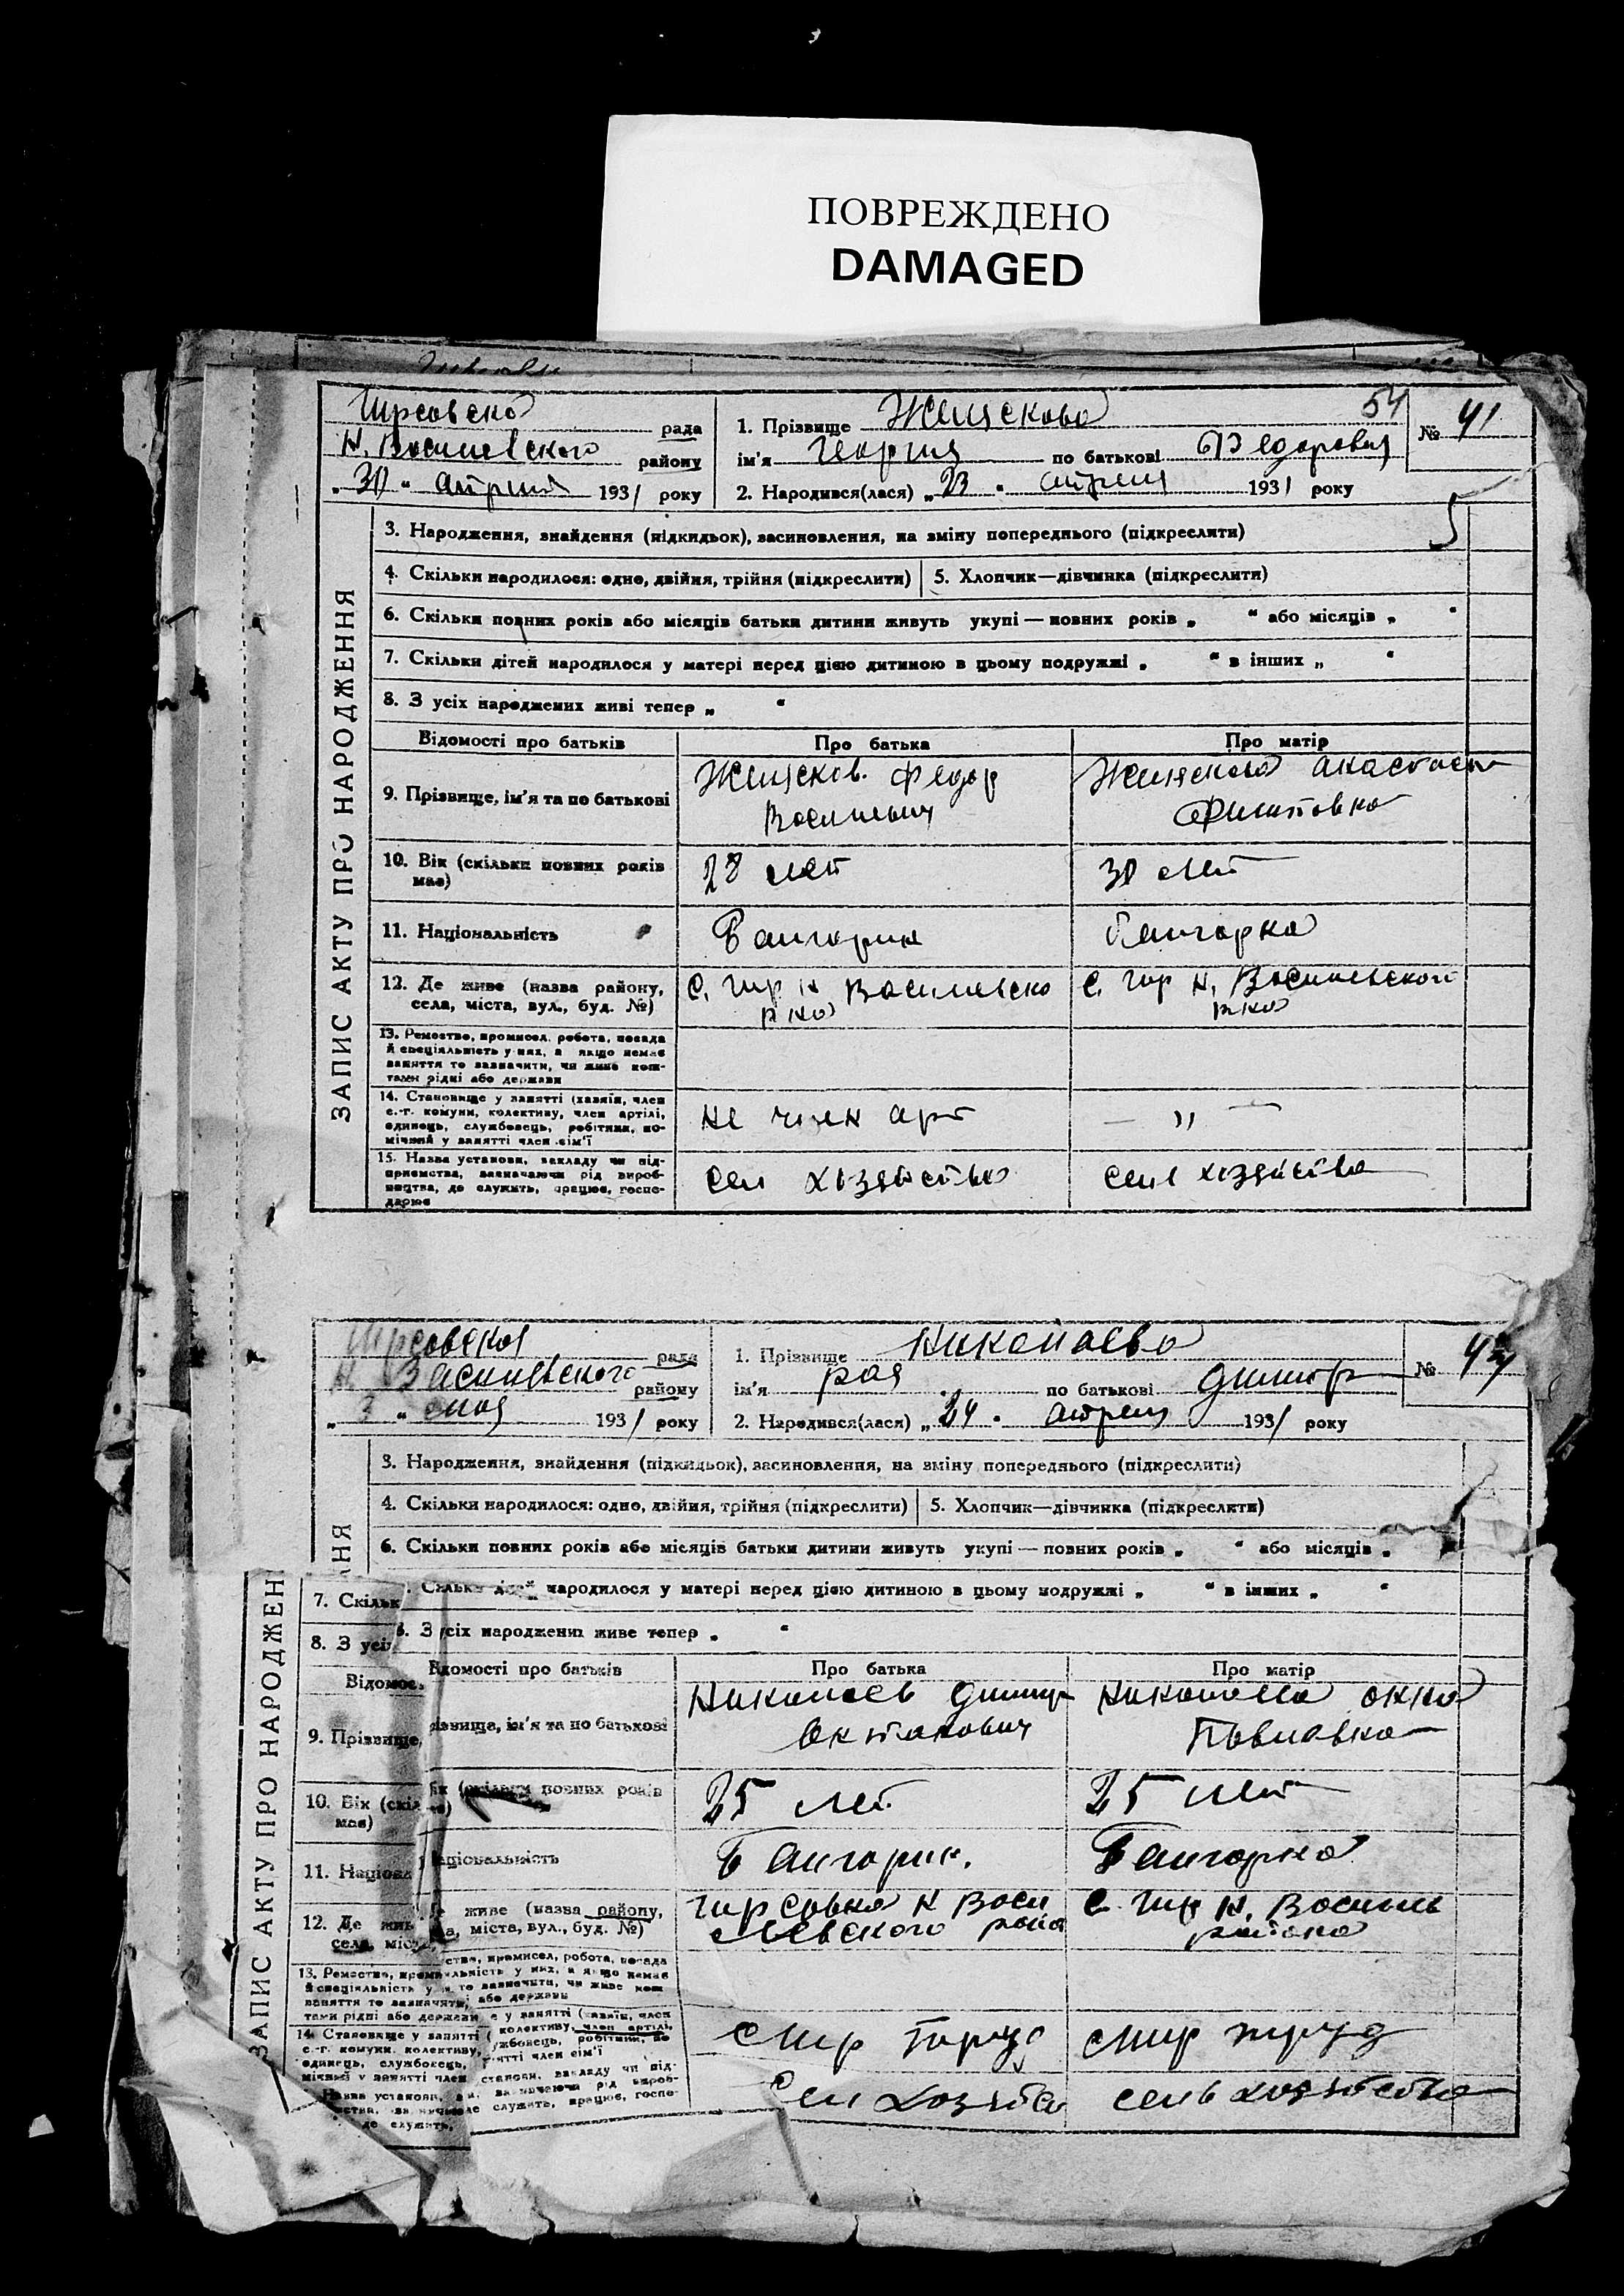 ПОВРЕЖДЕНО
DAMAGED
рада
Н. Василевского району
„30“ апреля 1931 року
1. Прізвище
54
ім'я Георгия по батькові Федоровия
2. Народився(лася) „23“ апреля 1931 року
№ 41
ЗАПИС АКТУ ПРО НАРОДЖЕННЯ
3. Народження, знайдення (підкидьок), засиновлення, на зміну попереднього (підкреслити)
4. Скільки народилося: одно, двійня, трійня (підкреслити) 5. Хлопчик—дівчинка (підкреслити)
6. Скільки повних років або місяців батьки дитини живуть укупі — повних років „ “ або місяців „ “
7. Скільки дітей народилося у матері перед цією дитиною в цьому подружжі „ “ в інших „ “
8. З усіх народжених живі тепер „ “
Відомості про батьків Про батька Про матір
9. Прізвище, ім'я та по батькові
Федор
Василиевич
Филиповна
10. Вік (скільки повних років
має)
28 лет
30 лет
11. Національність
Балгорин
Балгорка
12. Де живе (назва району,
села, міста, вул., буд. №)
С. Гир Н Василевско
рно
С. Гир Н. Василевской
рно
13. Ремество, промисел, робота, посада
й спеціяльність у них, а якщо немає
заняття то зазначити, чи живе кош-
тами рідні або держави
14. Становище у занятті (хазяїн, член
с.-г. комуни, колективу, член артілі,
одинець, службовець, робітник, по-
мічний у занятті член сім'ї
не член арт
— " —
15. Назва установи, закладу чи під-
приємства, зазначаючи рід вироб-
ництва, де служить, працює, госпо-
дарює
сел хозяйство
сел хозяйства
рада
Н. Василевского району
„3“ мая 1931 року
1. Прізвище Николаева
ім'я рая по батькові Димитр
2. Народився(лася) „24“ апреля 1931 року
№
3. Народження, знайдення (підкидьок), засиновлення, на зміну попереднього (підкреслити)
4. Скільки народилося: одно, двійня, трійня (підкреслити) 5. Хлопчик—дівчинка (підкреслити)
6. Скільки повних років або місяців батьки дитини живуть укупі — повних років „ “ або місяців „
ННЯ
ЗАПИС АКТУ ПРО НАРОДЖЕН
7. Скільк
народилося у матері перед цією дитиною в цьому подружжі „ “ в інших „ “
8. З усі
З усіх народжених живе тепер „ “
Відомос
ідомості про батьків Про батька Про матір
9. Прізвище,
ізвище, ім'я та по батькові
Николаев Димитр
Николаева
Павловна
10. Вік (скіл
має)
повних років
25 лет
25 лет
11. Націона
аціональність
Балгорин.
Балгорка
12. Де жив
села, міст
живе (назва району,
а, міста, вул., буд. №)
Гирсовка Н Васи
левского раїо
С. Гир Н. Василь
района
13. Ремество, пром
й спеціяльність у
заняття то зазначити,
тами рідні або держави
ство, промисел, робота, посада
яльність у них, а якщо немає
то зазначити, чи живе кош
або держави
14. Становище у занятті (
с.-г. комуни, колективу,
одинець, службовець,
мічний у занятті член
е у занятті (хазяїн, член
колективу, член артілі,
ужбовець, робітник, по
нятті член сім'ї
Назва установи,
де служить,
станови, закладу чи під-
зазначаючи рід вироб-
служить, працює, госпо-
Сел хозяйств
сель хозяйства